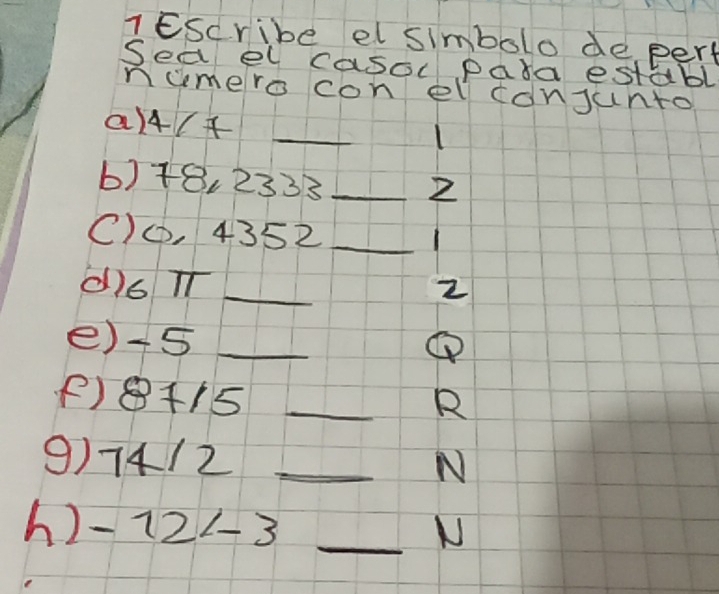 1 Escribe el simbolo de pert
Sea el casoc para establ
número con el conjunto
a) 4/7 ___ I
b) 78,2333 ___ Z
c) 0,4352 ___ I
d) 6 π ___ Z
e) -5 ___ Q
f) 87/5 ___ R
g) 14/2 ___ N
h) -12/-3 ___ N